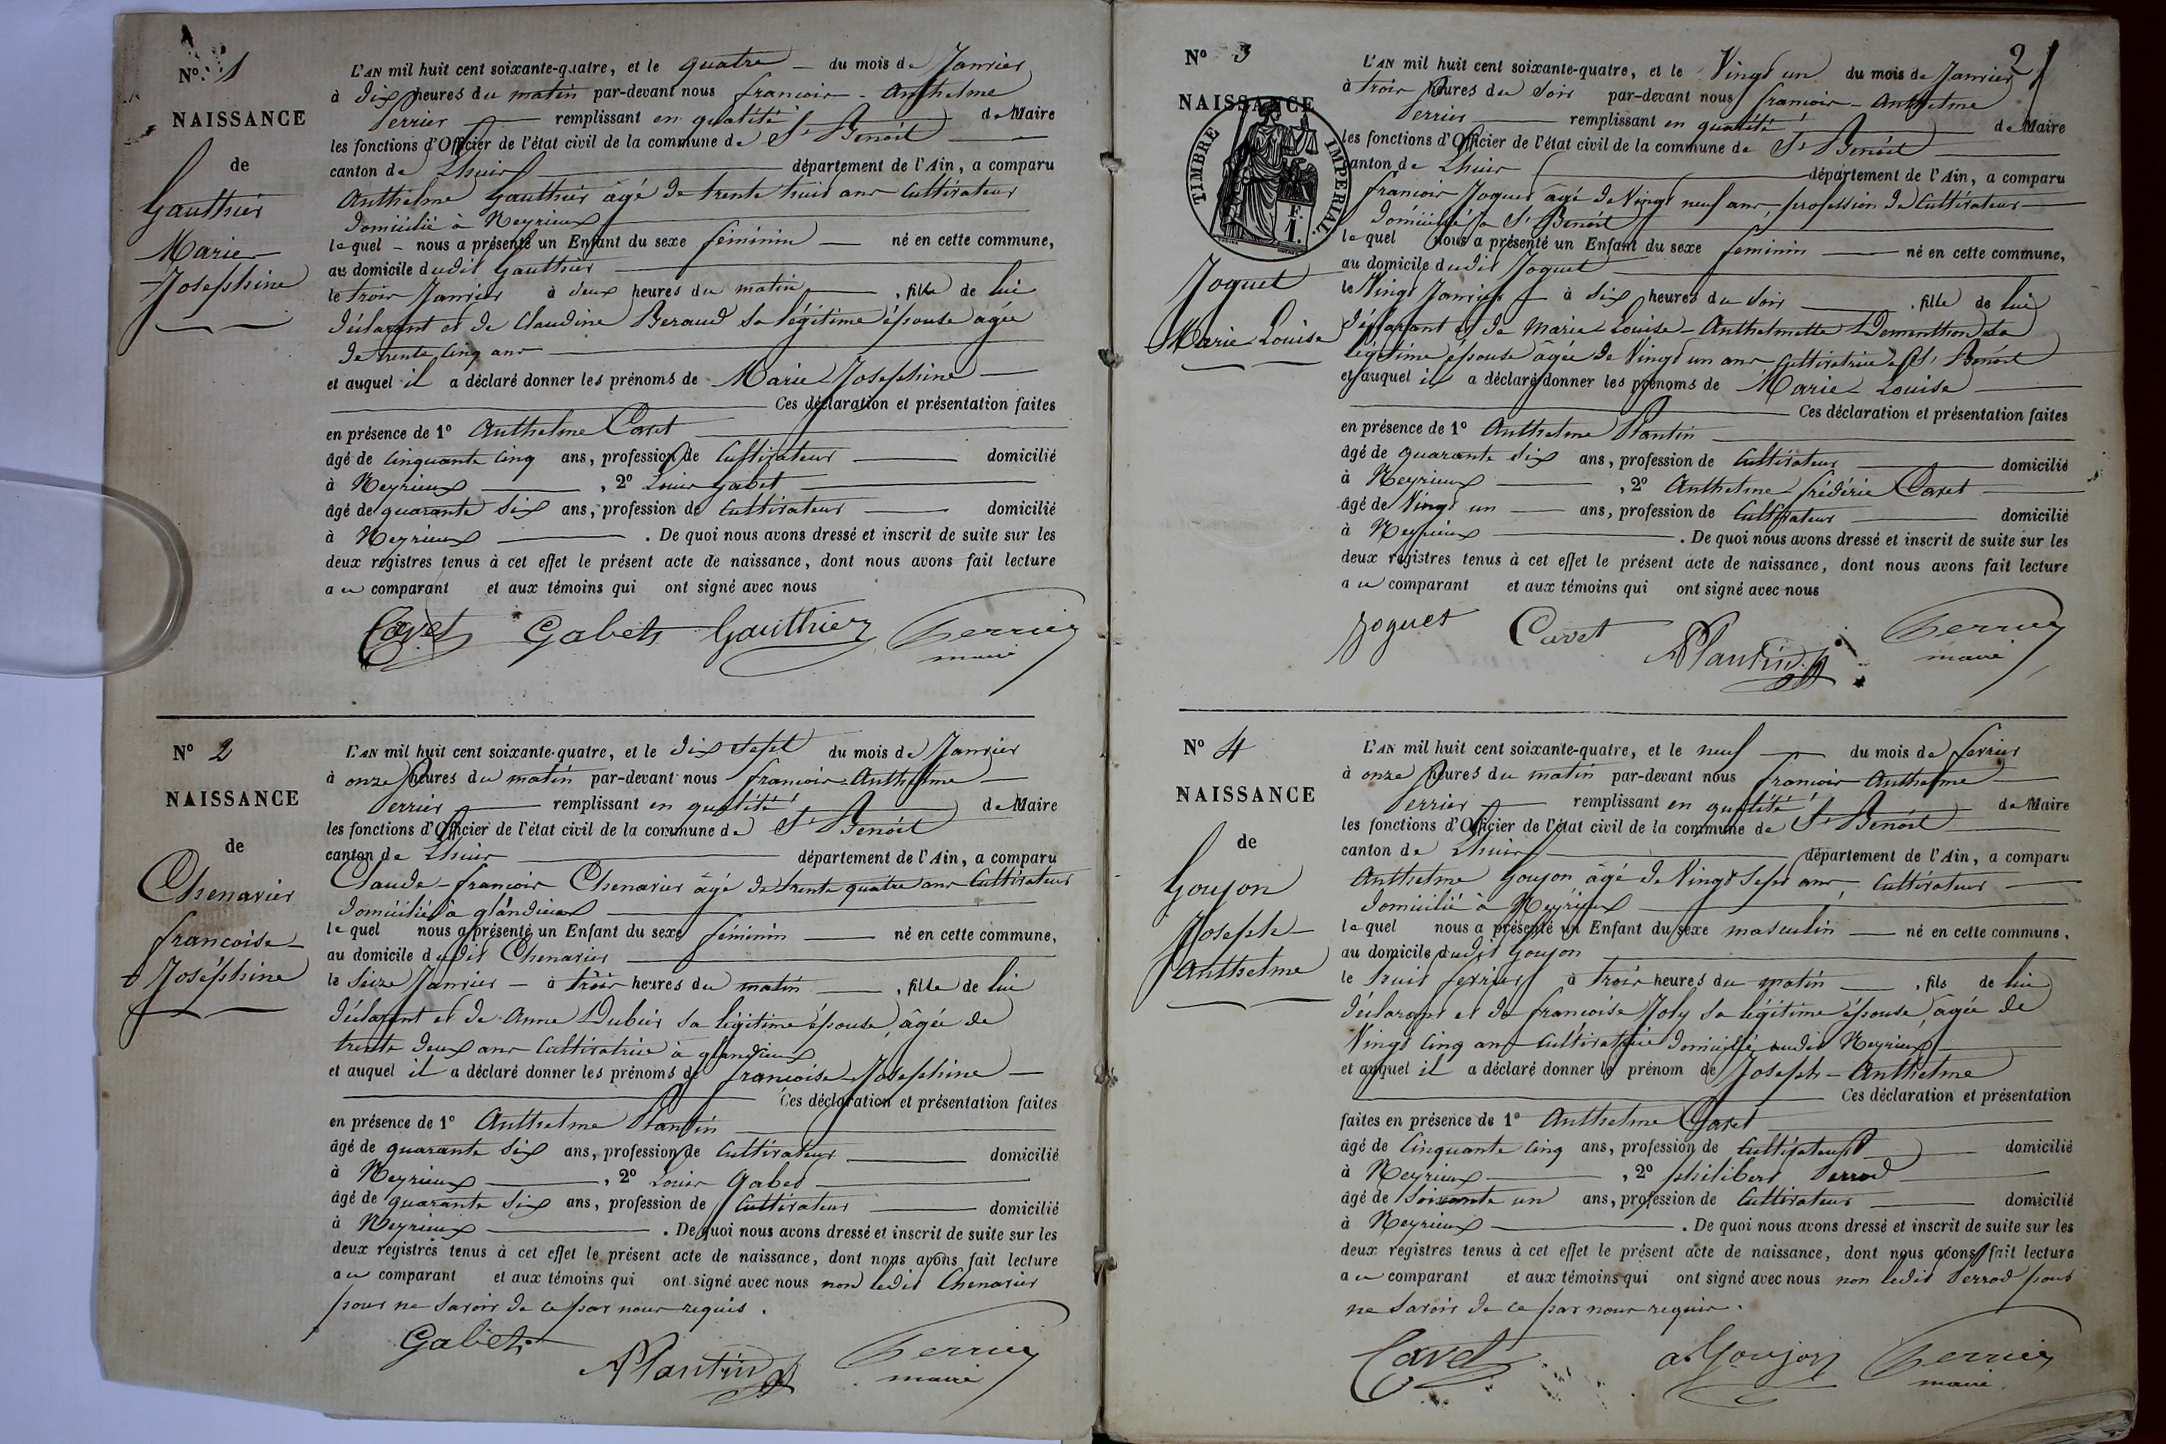 N° 1
NAISSANCE
de
Gauthier
Marie
Josephine
L'AN mil huit cent soixante-quatre, et le quatre du mois de Janvier
à dix heures du matin par-devant nous francois-Anthelme
Perrier remplissant en qualité de Maire
les fonctions d'Officier de l'état civil de la commune de St Benoit
canton de Lhuis département de l'Ain, a comparu
Anthelme Gauthier âgé de trente huit ans Cultivateur
domicilié à Neyrieux
lequel nous a présenté un Enfant du sexe féminin né en cette commune,
au domicile dudit Gauthier
le trois Janvier à deux heures du matin, fille de lui
déclarant et de Claudine Beraud sa légitime épouse agée
de trente cinq ans
et auquel il a déclaré donner les prénoms de Marie Josephine
Ces déclaration et présentation faites
en présence de 1° Anthelme Cavet
âgé de cinquante cinq ans, profession de Cultivateur domicilié
à Neyrieux, 2° Louis Gabet
âgé de quarante six ans, profession de Cultivateur domicilié
à Neyrieux. De quoi nous avons dressé et inscrit de suite sur les
deux registres tenus à cet effet le présent acte de naissance, dont nous avons fait lecture
au comparant et aux témoins qui ont signé avec nous
Cavet Gabet Gauthier Perrier
maire
N° 2
NAISSANCE
de
Chenavier
francoise
Joséphine
L'AN mil huit cent soixante-quatre, et le dix sept du mois de Janvier
à onze heures du matin par-devant nous francois-Anthelme
Perrier remplissant en qualité de Maire
les fonctions d'Officier de l'état civil de la commune de St Benoit
canton de Lhuis département de l'Ain, a comparu
Claude-francois Chenavier âgé de trente quatre ans Cultivateur
domicilié à glandieux
lequel nous a présenté un Enfant du sexe féminin né en cette commune,
au domicile dudit Chenavier
le seize Janvier à trois heures du matin, fille de lui
déclarant et de Anne Dubuis sa légitime épouse, âgée de
trente deux ans Cultivatrice à glandieux
et auquel il a déclaré donner les prénoms de francoise Josephine
Ces déclaration et présentation faites
en présence de 1° Anthelme Plantin
âgé de quarante six ans, profession de Cultivateur domicilié
à Neyrieux, 2° Louis Gabet
âgé de quarante six ans, profession de Cultivateur domicilié
à Neyrieux. De quoi nous avons dressé et inscrit de suite sur les
deux registres tenus à cet effet le présent acte de naissance, dont nous avons fait lecture
au comparant et aux témoins qui ont signé avec nous non ledit Chenavier
pour ne savoir de ce par nous requis.
Gabet APlantin Perrier
maire
2
N° 3
NAISSANCE
TIMBRE IMPERIAL
F.
1.
Joguet
Marie Louise
L'AN mil huit cent soixante-quatre, et le Vingt un du mois de Janvier
à trois heures du soir par-devant nous francois-Anthelme
Perrier remplissant en qualité de Maire
les fonctions d'Officier de l'état civil de la commune de St Benoit
canton de Lhuis département de l'Ain, a comparu
francois Joguet âgé de Vingt neuf ans, profession de Cultivateur
domicilié à St Benoit
lequel nous a présenté un Enfant du sexe feminin né en cette commune,
au domicile dudit Joguet
le Vingt Janvier à six heures du soir, fille de lui
déclarant et de Marie-Louise-Anthelmette Dementhon sa
légitime épouse âgée de Vingt un ans Cultivatrice à St Benoit
et auquel il a déclaré donner les prénoms de Marie-Louise
Ces déclaration et présentation faites
en présence de 1° Anthelme Plantin
âgé de quarante six ans, profession de Cultivateur domicilié
à Neyrieux, 2° Anthelme frédéric Cavet
âgé de Vingt un ans, profession de Cultivateur domicilié
à Neyrieux. De quoi nous avons dressé et inscrit de suite sur les
deux registres tenus à cet effet le présent acte de naissance, dont nous avons fait lecture
au comparant et aux témoins qui ont signé avec nous
Joguet Cavet APlantin Perrier
maire
N° 4
NAISSANCE
de
Goujon
Joseph
Anthelme
L'AN mil huit cent soixante-quatre, et le neuf du mois de fevrier
à onze heures du matin par-devant nous francois-Anthelme
Perrier remplissant en qualité de Maire
les fonctions d'Officier de l'état civil de la commune de St Benoit
canton de Lhuis département de l'Ain, a comparu
Anthelme Goujon âgé de Vingt sept ans, Cultivateur
domicilié à Neyrieux
lequel nous a présenté un Enfant du sexe masculin né en cette commune,
au domicile dudit Goujon
le huit fevrier à trois heures du matin, fils de lui
déclarant et de francoise Joly sa légitime épouse, agée de
Vingt cinq ans Cultivatrice domiciliée audit Neyrieux
et auquel il a déclaré donner le prénom de Joseph-Anthelme
Ces déclaration et présentation
faites en présence de 1° Anthelme Cavet
âgé de Cinquante cinq ans, profession de Cultivateur domicilié
à Neyrieux, 2° philibert Perrod
âgé de soixante un ans, profession de Cultivateur domicilié
à Neyrieux. De quoi nous avons dressé et inscrit de suite sur les
deux registres tenus à cet effet le présent acte de naissance, dont nous avons fait lecture
au comparant et aux témoins qui ont signé avec nous non ledit Perrod pour
ne savoir de ce par nous requis.
Cavet a. Goujon Perrier
maire